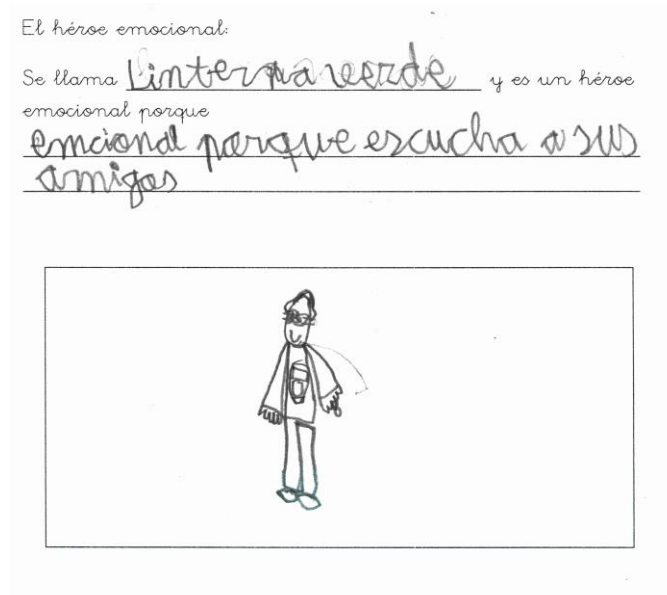 El héroe emocional:
Se llama Linterna verde y es un héroe
emocional porque
emcional porque escucha a sus
amigos